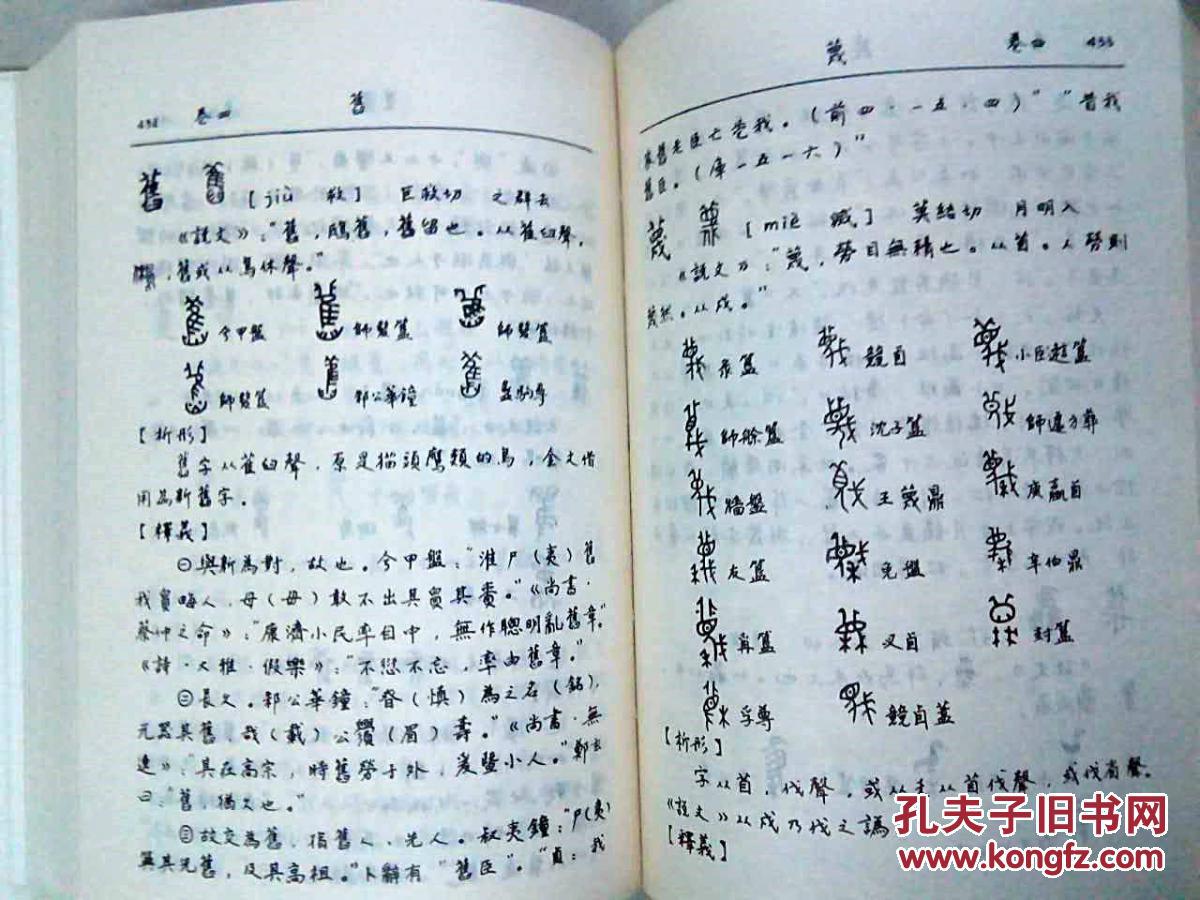 434 卷四 舊
舊 [jiù 救] 巨救切 之群去
《説文》:“舊,鴟舊,舊留也。从萑臼聲。
,舊或从鳥休聲。”
兮甲盤 師嫠簋 師嫠簋
師嫠簋 邾公華鐘 盠駒尊
[析形]
舊字从萑臼聲,原是猫頭鷹類的鳥,金文借
用為新舊字。
[釋義]
㊀與新為對,故也。今甲盤:“淮尸(夷)舊
我𧵩畮人,母(毋)敢不出其𧵩其責。”《尚書·
蔡仲之命》:“康濟小民率自中,無作聰明亂舊章。”
《詩·大雅·假樂》:“不愆不忘,率由舊章。”
㊁長久。邾公華鐘:“昚(慎)為之名(銘),
元器其舊,哉(載)公眉(眉)壽。”《尚書·無
逸》:“其在高宗,時舊勞于外,爰暨小人。”鄭玄
曰:“舊,猶久也。”
㊂故交為舊,指舊人、先人。叔夷鐘:“尸(夷)
其先舊,及其高祖。”卜辭有“舊臣”。“貞:我
蔑 卷四 435
家舊老臣亡𡆥我。(前四·一五·四)”“昔我
舊臣。(庫一五一六)”
蔑 [miè 滅] 莫結切 月明入
《説文》:“蔑,勞目無精也。从𥄕。人勞則
蔑然。从戍。”
彔簋 競卣 小臣簋
師艅簋 沈子簋 師遽方彝
牆盤 王蔑鼎 庚嬴卣
友簋 免盤 辛伯鼎
爯簋 卣 封簋
孚尊 競卣蓋
[析形]
字从𥄕,伐聲,或从禾从𥄕伐聲,或伐省聲。
《説文》从戍乃伐之譌
[釋義]
孔夫子旧书网
www.kongfz.com